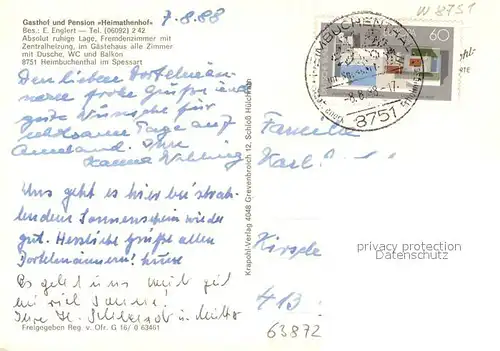 Gasthof und Pension »Heimathenhof«
Bes.: E. Englert — Tel. (06092) 2 42
Absolut ruhige Lage, Fremdenzimmer mit
Zentralheizung, im Gästehaus alle Zimmer
mit Dusche, WC und Balkon
8751 Heimbuchenthal im Spessart
7.8.88
W 8751
60
HEIMBUCHENTHAL
-8.8.88-17
8751
Den lieben
frohe Grüße und
gute Wünsche für
Tage auf
Ihre
Hanna
Uns geht es hier bei strah-
lendem Sonnenschein wieder
gut. Herzliche Grüße allen
Es geht uns auch gut
viel Sonne!
Ihre H. und Mutter
Freigegeben Reg. v. Ofr. G 16/0 63461
Krapohl-Verlag 4048 Grevenbroich 12, Schloß Hülchrath
Familie
Karl
Kirsche
413
63872
privacy protection
Datenschutz